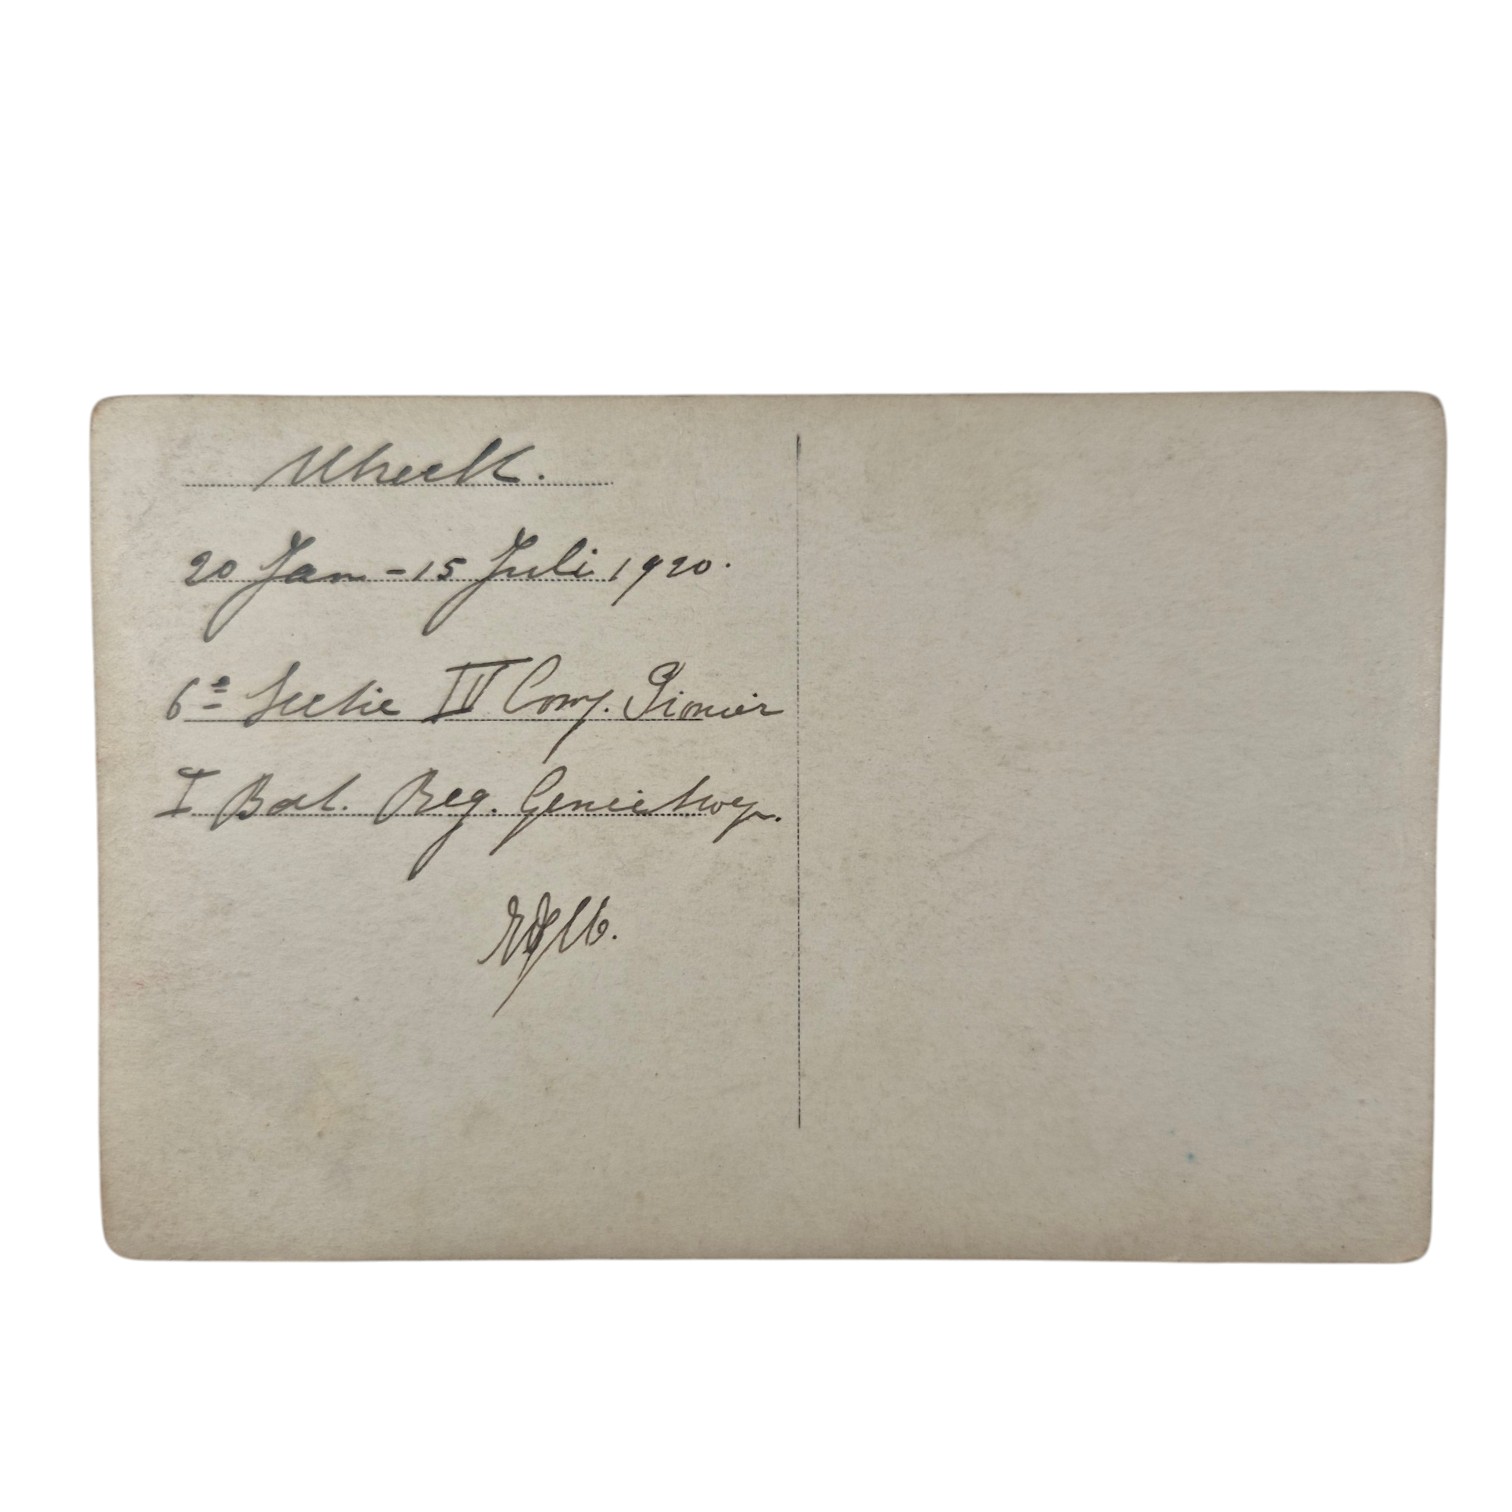 Utrecht.
20 Jan - 15 Juli 1920.
6e Sectie IV Comp. Pionier
I Bat. Reg. Genietroep.